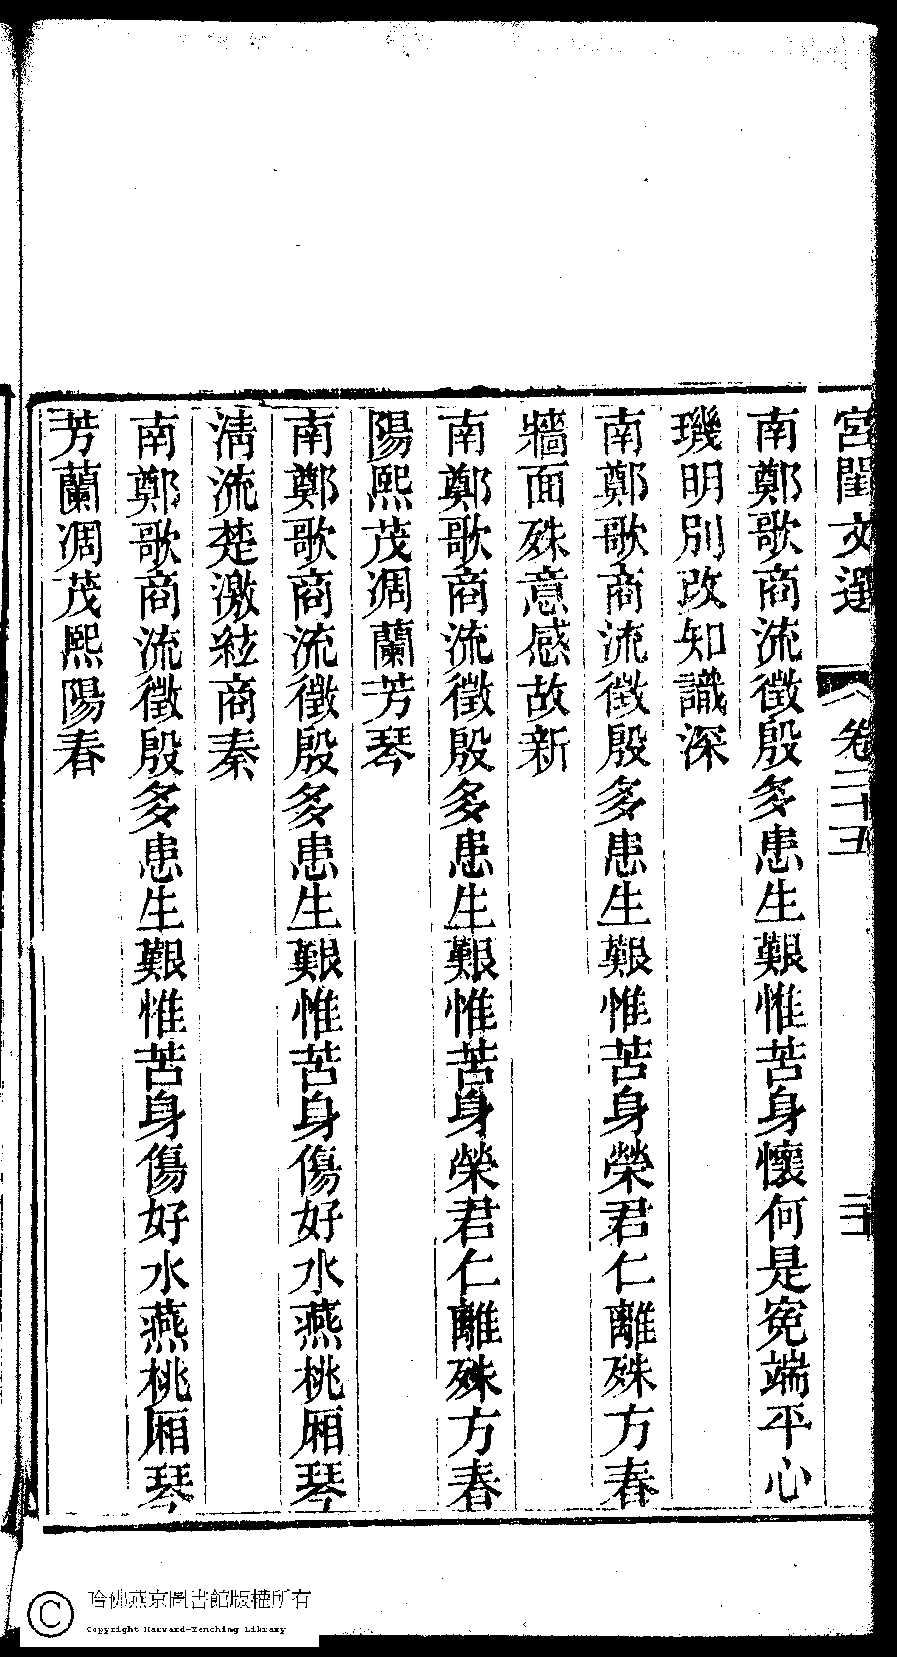 宮閨文選 卷二十五 二十
南鄭歌商流徵殷多患生艱惟苦身懷何是冤端平心
璣明別改知識深
南鄭歌商流徵殷多患生艱惟苦身榮君仁離殊方春
牆面殊意感故新
南鄭歌商流徵殷多患生艱惟苦身榮君仁離殊方春
陽熙茂凋蘭芳琴
南鄭歌商流徵殷多患生艱惟苦身傷好水燕桃廂琴
淸流楚激絃商秦
南鄭歌商流徵殷多患生艱惟苦身傷好水燕桃廂琴
芳蘭凋茂熙陽春
哈佛燕京圖書館版權所有
Copyright Harvard-Yenching Library